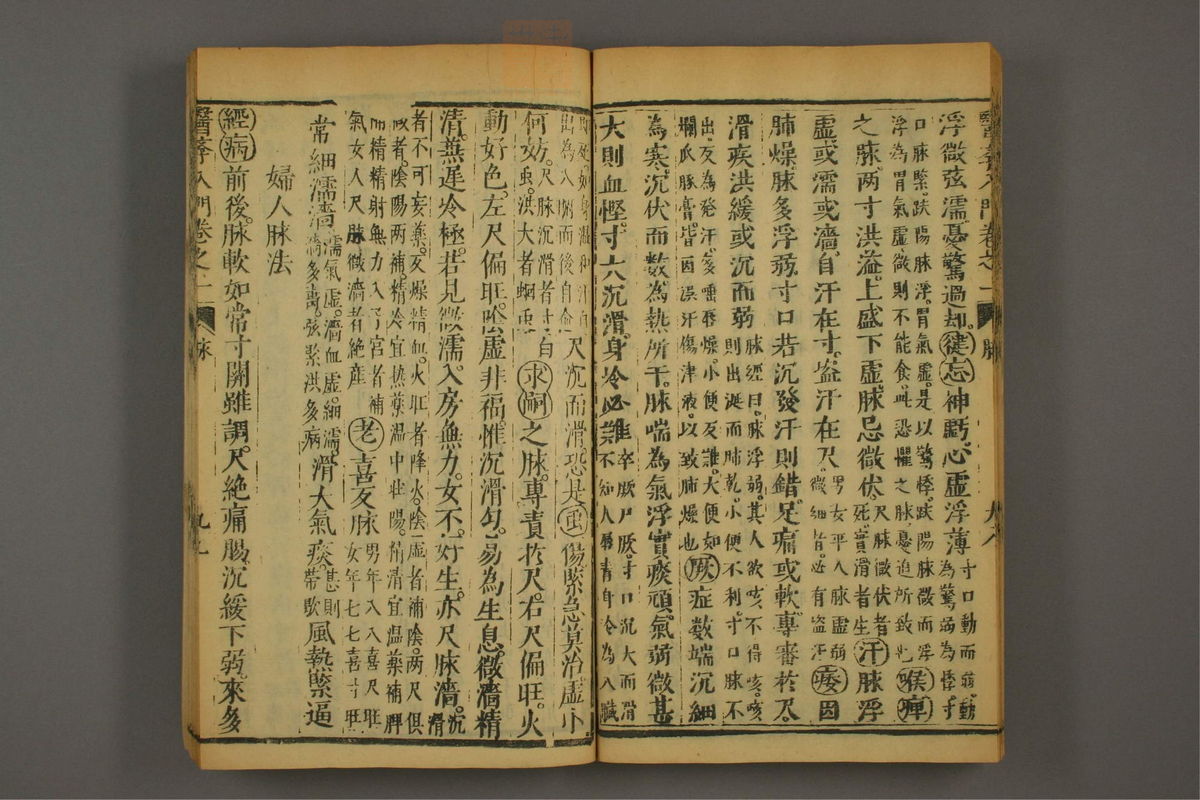 浮微弦濡憂驚過却健忘神虧心虛浮薄寸口動而弱動為驚弱為悸寸
口脉緊趺陽脉浮胃氣虛是以驚悸趺陽脉微而浮
浮為胃氣虛微則不能食此恐懼之脉憂迫所致也喉痺
之脉两寸洪溢上盛下虛脉忌微伏尺脉微伏者死實滑者生汗脉浮
虛或濡或濇自汗在寸盗汗在尺男女平人脉虛弱微細者必有盗汗痿因
肺燥脉多浮弱寸口若沉發汗則錯足痛或軟專審於尺
滑疾洪緩或沉而弱脉經曰脉浮弱其人欲咳不得咳咳則出涎而肺乾小便不利寸口脉不
出反為發汗多唾唇燥小便反難大便如
爛瓜豚膏皆因誤汗傷津液以致肺燥也厥症数端沉細
為寒沉伏而数為熱所干脉喘為氣浮實痰頑氣弱微甚
大則血慳寸大沉滑身冷必難卒厥尸厥寸口沉大而滑不知人唇青身冷為入臟
即死如身温和汗自
出為入腑而後自愈尺沉而滑恐是虫傷緊急莫治虛小
何妨尺脉沉滑者寸白虫洪大者蛔虫求嗣之脉專責於尺右尺偏旺火
動好色左尺偏旺陰虛非福惟沉滑匀易為生息微濇精
清兼遲冷極若見微濡入房無力女不好生亦尺脉濇沉滑
者不可妄藥反燥精血火旺者降火陰虛者補陰两尺俱
微者陰陽两補精冷宜热藥温中壮陽精清宜温藥補脾
而精精射無力入子宮者補
氣女人尺脉微濇者絶産老喜反脉男年八八喜尺旺女年七七喜寸旺
常細濡濇濡氣虛濇血虛細濡濇多壽弦緊洪多病滑大氣痰甚則帶歇風熱緊逼
婦人脉法
經病前後脉軟如常寸關雖調尺絶痛腸沉緩下弱來多
醫學入門卷之一
脉
九七